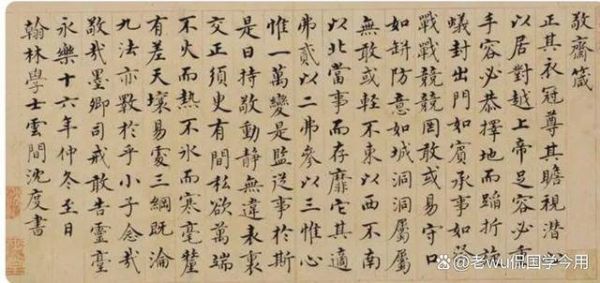 敬齋箴
正其衣冠尊其瞻視潛心
以居對越上帝足容必重
手容必恭擇地而蹈折旋
蟻封出門如賓承事如祭
戰戰兢兢罔敢或易守口
如缾防意如城洞洞屬屬
無敢或輕不東以西不南
以北當事而存靡它其適
弗貳以二弗參以三惟心
惟一萬變是監從事於斯
是曰持敬動靜無違表裏
交正須臾有間私欲萬端
不火而熱不冰而寒毫釐
有差天壤易處三綱既淪
九法亦斁於乎小子念哉
敬哉墨卿司戒敢告靈臺
永樂十六年仲冬至日
翰林學士雲間沈度書
老wu侃国学今用